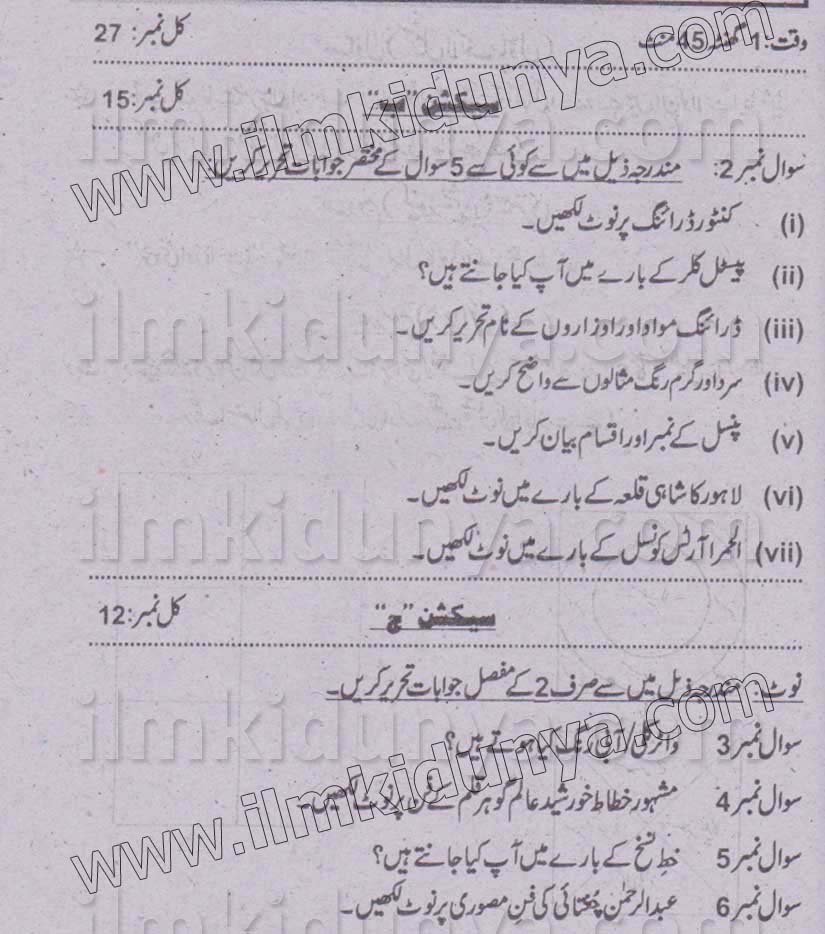 وقت: 1 گھنٹہ 45 منٹ کل نمبر: 27
سیکشن "ب" کل نمبر: 15
سوال نمبر 2: مندرجہ ذیل میں سے کوئی سے 5 سوال کے مختصر جوابات تحریر کریں۔
(i) کنٹور ڈرائنگ پر نوٹ لکھیں۔
(ii) پیسٹل کلر کے بارے میں آپ کیا جانتے ہیں؟
(iii) ڈرائنگ مواد اور اوزاروں کے نام تحریر کریں۔
(iv) سرد اور گرم رنگ مثالوں سے واضح کریں۔
(v) پنسل کے نمبر اور اقسام بیان کریں۔
(vi) لاہور کا شاہی قلعہ کے بارے میں نوٹ لکھیں۔
(vii) الحمرا آرٹس کونسل کے بارے میں نوٹ لکھیں۔
سیکشن "ج" کل نمبر: 12
نوٹ: مندرجہ ذیل میں سے صرف 2 کے مفصل جوابات تحریر کریں۔
سوال نمبر 3 واٹر کلر/آبی رنگ کیا ہوتے ہیں؟
سوال نمبر 4 مشہور خطاط خورشید عالم گوہر قلم کے فن پر نوٹ لکھیں۔
سوال نمبر 5 خطِ نسخ کے بارے میں آپ کیا جانتے ہیں؟
سوال نمبر 6 عبدالرحمٰن چغتائی کی فنِ مصوری پر نوٹ لکھیں۔
www.ilmkidunya.com
www.ilmkidunya.com
ilmkidunya.com
ilmkidunya.com
ilmkidunya.com
ilmkidunya.com
ilmkidunya.com